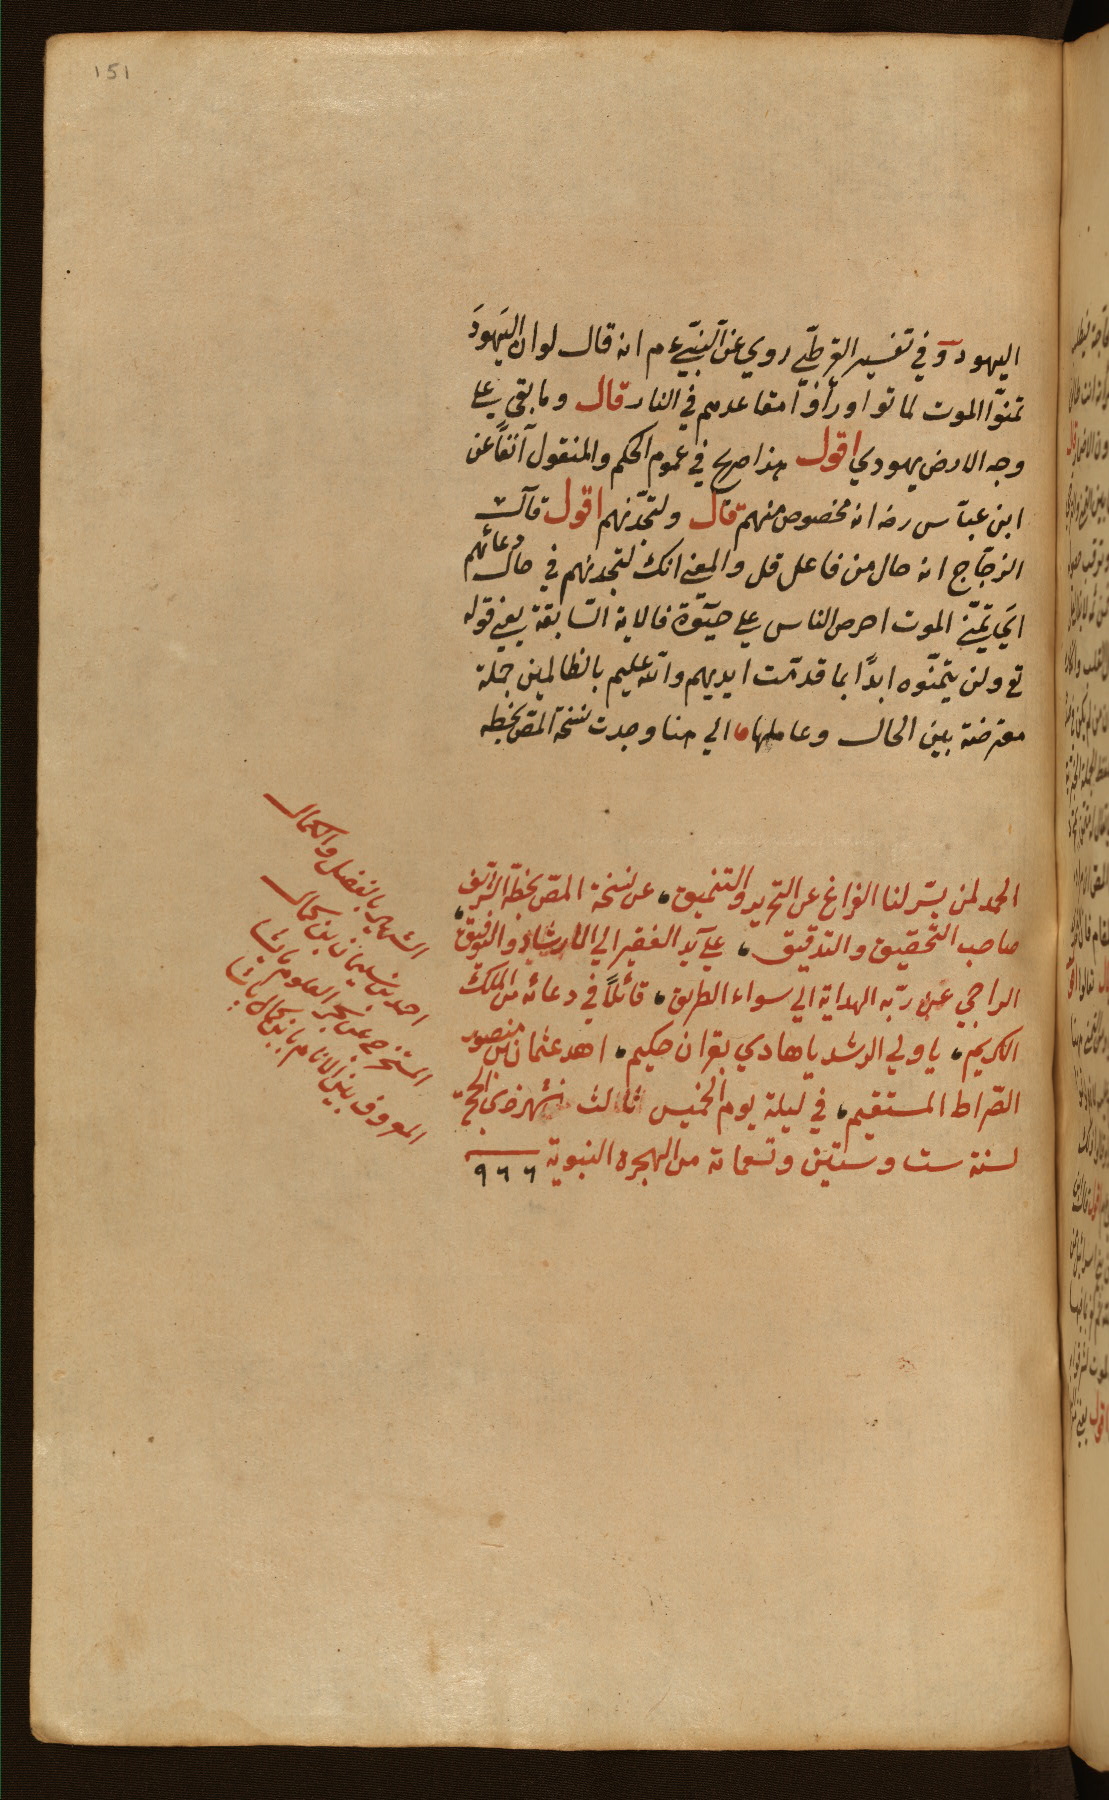 ١٥١
اليهود وفي تفسير القرطبي روي عن النبي ءم انه قال لو ان اليهود
تمنوا الموت لماتوا ورأوا مقاعدهم في النار قال وما بقي على
وجه الارض يهودي اقول هذا صريح في عموم الحكم والمنقول آنفا عن
ابن عباس رضه انه مخصوص منهم قال ولتجدنهم اقول قالت
الزجاج انه حال من فاعل قل والمعنى انك لتجدنهم في حال دعائهم
اي تمني الموت احرص الناس على حيوة فالاية السابقة يعني قوله
تع ولن يتمنوه ابدا بما قدمت ايديهم والله عليم بالظالمين جملة
معترضة بين الحال وعاملها الى هنا وجدت نسخة المص بخطه
الحمد لمن يسر لنا الفراغ عن التحرير والتنميق، عن نسخة المص بخطه الشريف
صاحب التحقيق والتدقيق، على يد الفقير الى الارشاد والتوفيق
الراجي عن ربه الهداية الى سواء الطريق، قائلا في دعائه من الملك
الكريم، يا ولي الرشد يا هادي بقران حكيم، اهد عثمان بن منصور
الصراط المستقيم، في ليلة يوم الخميس ثالث شهر ذي الحجة
لسنة ست وستين وتسعمائة من الهجرة النبوية ٩٦٦
الشهير بالفضل والكمال
احمد بن سليمان بن كمال
المستخرج عن بحر العلوم ما يشا
المعروف بين الانام بابن كمال باشا